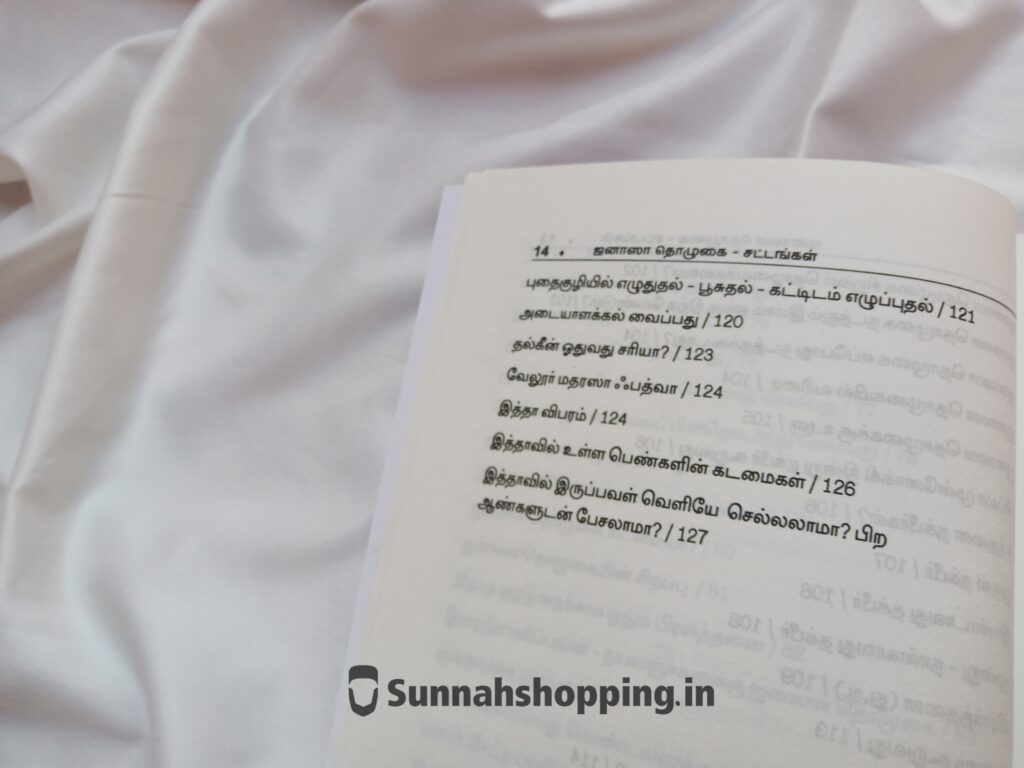 14 • ஜனாஸா தொழுகை - சட்டங்கள்
புதைகுழியில் எழுதுதல் - பூசுதல் - கட்டிடம் எழுப்புதல் / 121
அடையாளக்கல் வைப்பது / 120
தல்கீன் ஓதுவது சரியா? / 123
வேலூர் மதரஸா ஃபத்வா / 124
இத்தா விபரம் / 124
இத்தாவில் உள்ள பெண்களின் கடமைகள் / 126
இத்தாவில் இருப்பவள் வெளியே செல்லலாமா? பிற
ஆண்களுடன் பேசலாமா? / 127
Sunnahshopping.in